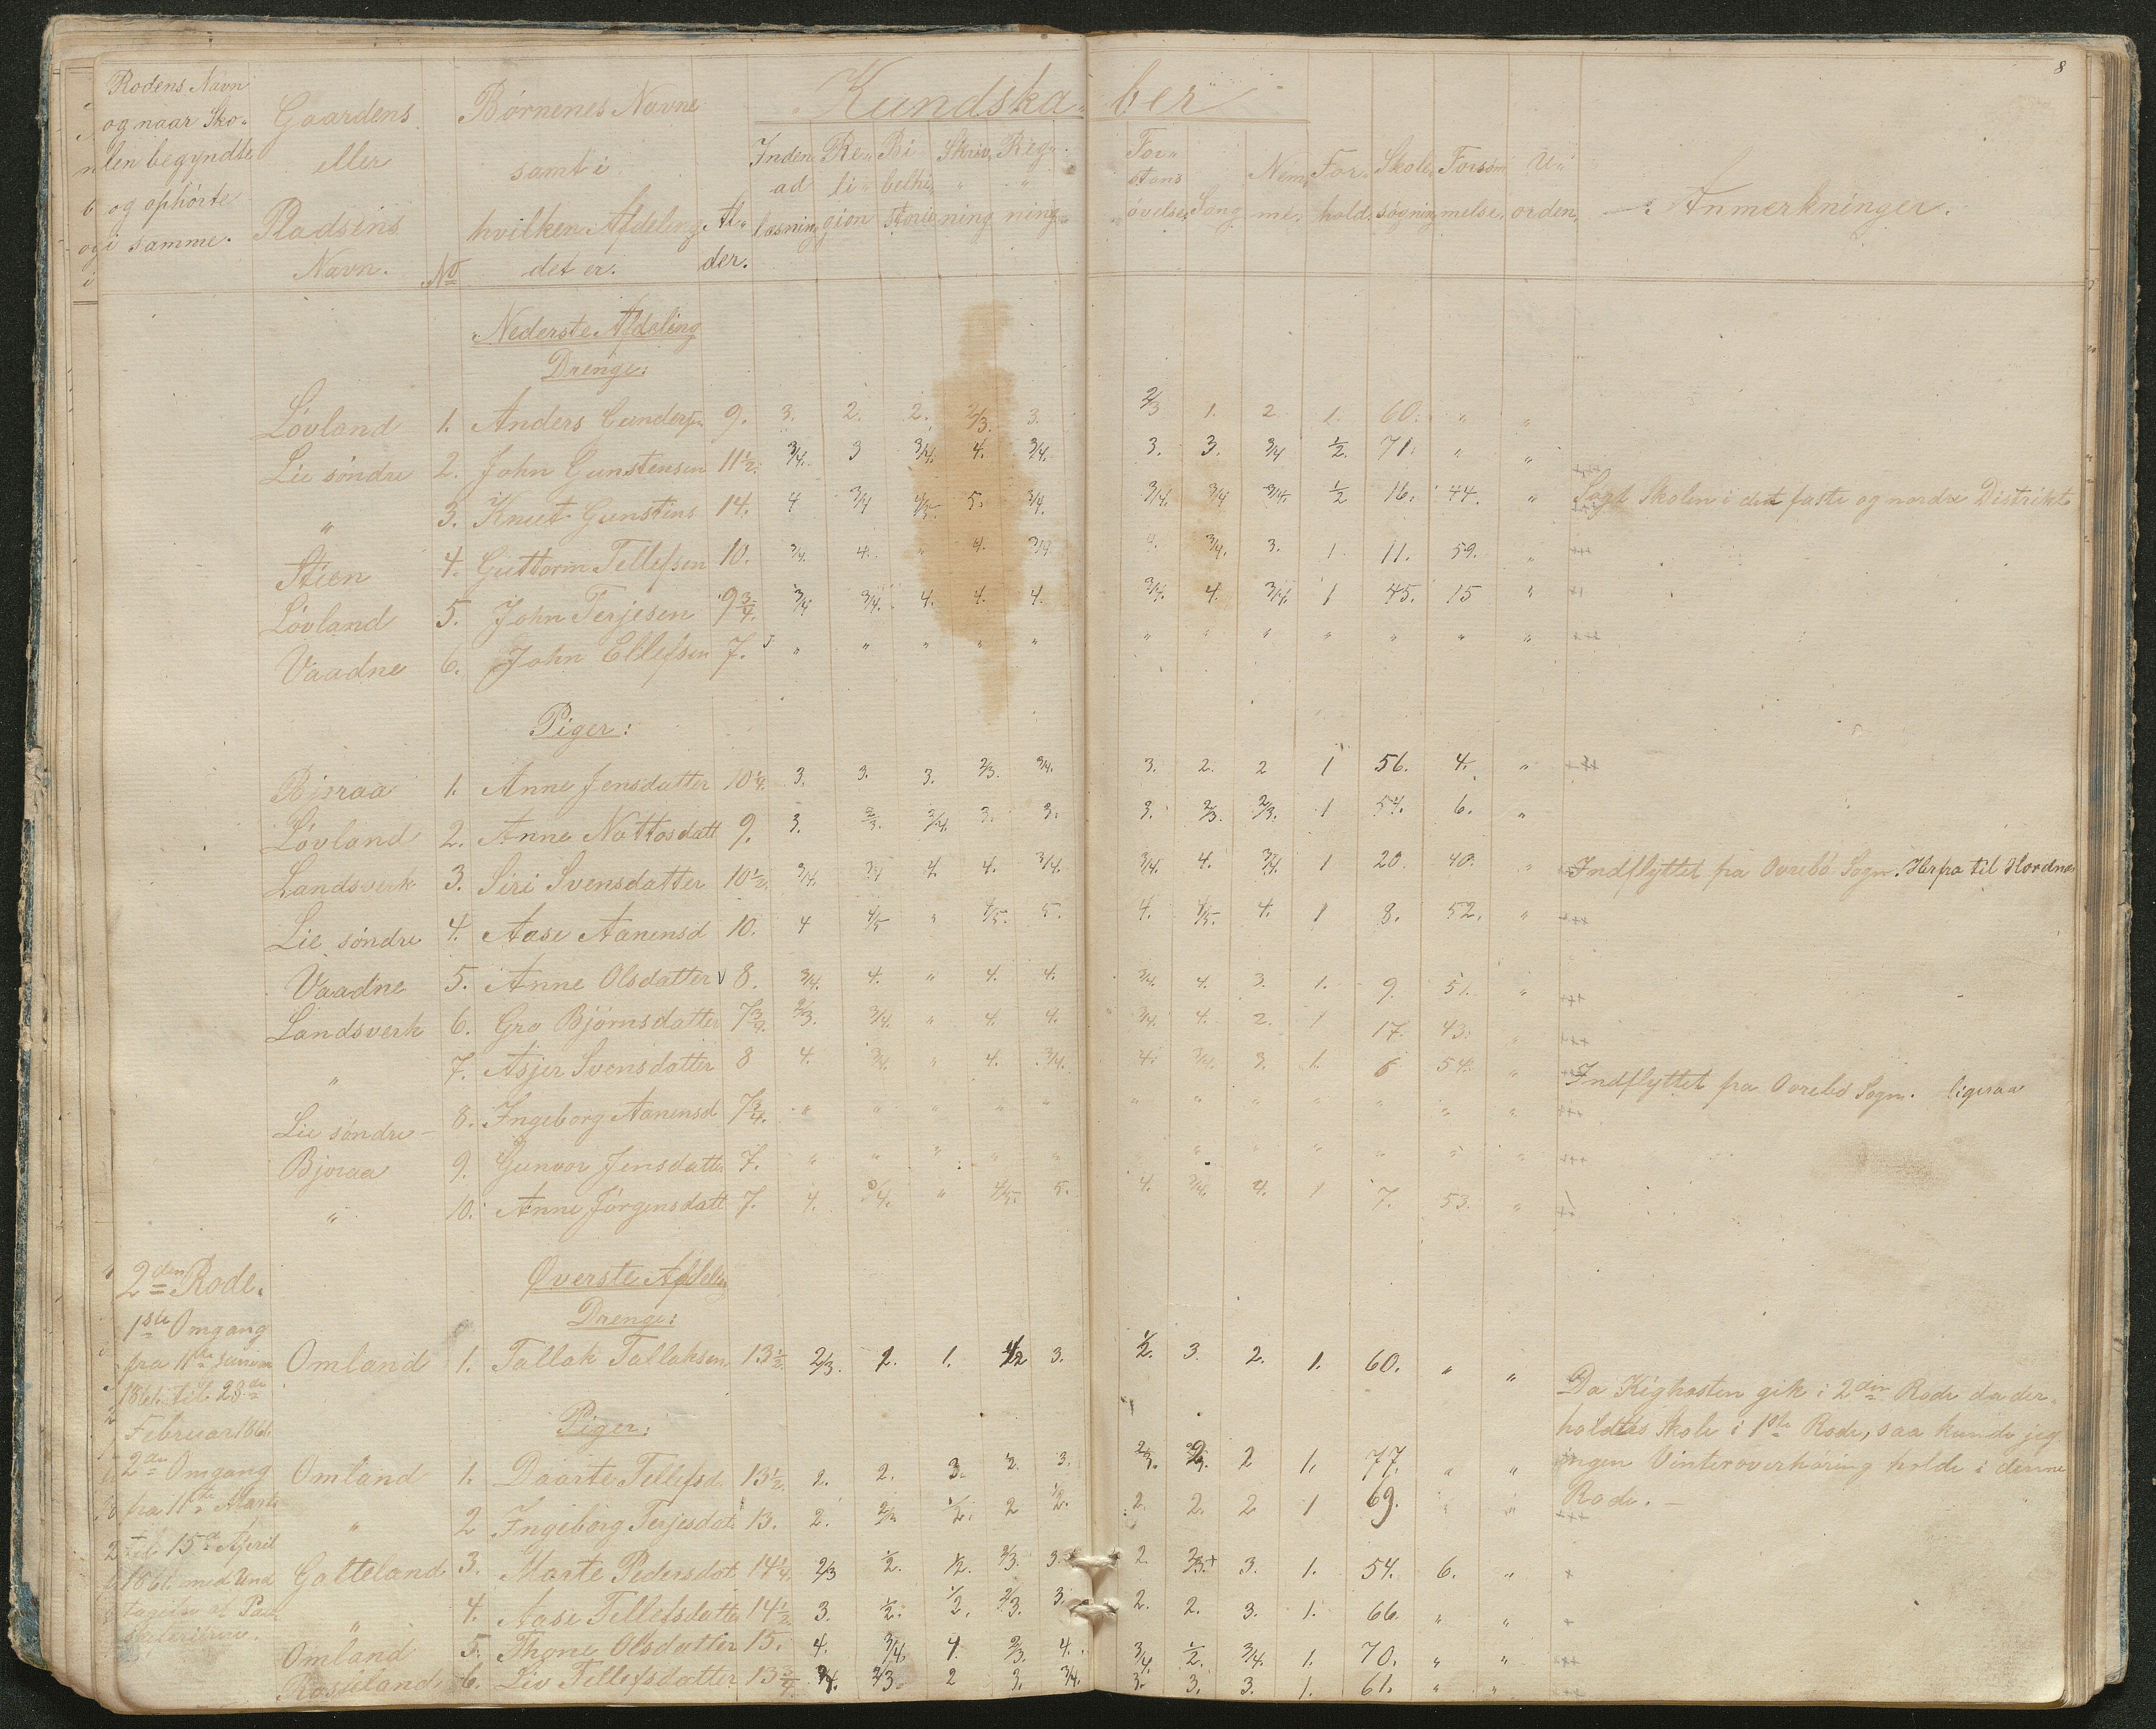 8
Rodens Navn og naar Sko- len begyndte og ophörte i samme.
Gaardens eller Pladsens Navn.
No
Börnenes Navne samt i hvilken Afdeling det er.
Al- der.
Kundska- ber
Inden- ad læsning
Re- li- gion
Bi belhi- storie
Skriv- ning
Reg- ning
For- stans övelse
Sang
Nem- me.
For- hold
Skole- sögning
Forsöm- melse.
U- orden
Anmerkninger.
Nederste Afdeling
Drenge:
Lövland 1. Anders Gundersen 9. 3. 2. 2. 2/3. 3. 2/3 1. 2 1. 60. " "
Lie söndre 2. John Gunstensen 11 1/2. 3/4. 3 3/4. 4. 3/4. 3. 3. 3/4 1/2. 71. " "
" 3. Knut Gunstens 14. 4 3/4 4/5. 5. 3/4. 3/4. 3/4 3/4. 1/2 16. 44. " Sögt Skolen i det faste og nordre Distrikt
Stien 4. Guttorm Tellefsen 10. 3/4. 4. " 4. 3/4. 4. 3/4. 3. 1. 11. 59. "
Lövland 5. John Terjesen 9 3/4. 3/4 3/4. 4. 4. 4. 3/4. 4. 3/4. 1 45. 15 "
Vaadne 6. John Ellefsen 7. " " " " " " " " " " " "
Piger:
Bjoraa 1. Anne Jensdatter 10 1/4. 3. 3. 3. 2/3. 3/4. 3. 2. 2 1 56. 4. "
Lövland 2. Anne Nottosdatt 9. 3. 2/3. 3/4. 3. 3. 3. 2/3. 2/3. 1 54. 6. "
Landsverk 3. Siri Svensdatter 10 1/2. 3/4. 3/4 4. 4. 3/4. 3/4. 4. 3/4. 1 20. 40. " Indflyttet fra Övrebö Sogn. Herfra til Hordnes
Lie söndre 4. Aase Aanensd 10. 4 4/5 " 4/5. 5. 4. 4/5. 4. 1 8. 52. "
Vaadne 5. Anne Olsdatter 8. 3/4. 4. " 4. 4. 3/4. 4. 3. 1. 9. 51. "
Landsverk 6. Gro Björnsdatter 7 3/4. 2/3. 3/4. " 4. 4. 3/4. 4. 2. 1 17. 43. "
" 7. Asjer Svensdatter 8 4. 3/4. " 4. 3/4. 4. 3/4. 3. 1. 6 54. " Indflyttet fra Övrebö Sogn. ligesaa
Lie söndre 8. Ingeborg Aanensd 7 3/4. " " " " " " " " " " " "
Bjoraa 9. Gunvor Jensdatter 7. " " " " " " " " " " " "
" 10. Anne Jörgensdatt 7. 4. 3/4. " 4/5. 5. 4. 3/4. 4. 1 7. 53. "
2den Rode.
Øverste Afdeling
Drenge:
1ste Omgang
fra 11te Januar
1861 til 23de
Februar 1861.
2den Omgang
fra 11te Marts
til 15de April
1861 med Und
tagelse af Paa
skeferierne.
Omland 1. Tallak Tallaksen 13 1/2. 2/3. 2. 1. 1/2 3. 1/2. 3. 2. 1. 60. " "
Da Kighosten gik i 2den Rode da der
holdtes Skole i 1ste Rode, saa kunde jeg
ingen Vinteroverhöring holde i denne
Rode.
Piger:
Omland 1. Daarte Tellefsd. 13 1/2. 2. 2. 3. 2. 3. 2/3. 2/3. 2 1. 77. " "
" 2 Ingeborg Terjesdat. 13. 2. 2/3 1/2. 2 1/2. 2. 2. 2 1 69. " "
Galteland 3. Marte Pedersdat. 14 1/4. 2/3 1/2. 1/2. 2/3. 3. 2. 2/3. 3. 1. 54. 6. "
" 4. Aase Tellefsdatter 14 1/2. 3. 1/2. 1/2. 2/3. 3. 2. 2. 3. 1. 66. " "
Omland 5. Thone Olsdatter 15. 4. 3/4. 4. 2/3. 4. 3/4. 1/2. 3/4. 1. 70. " "
Rosseland 6. Liv Tellefsdatter 13 3/4. 3/4. 2/3. 2 3. 3/4. 3. 3. 3. 1. 61. " "